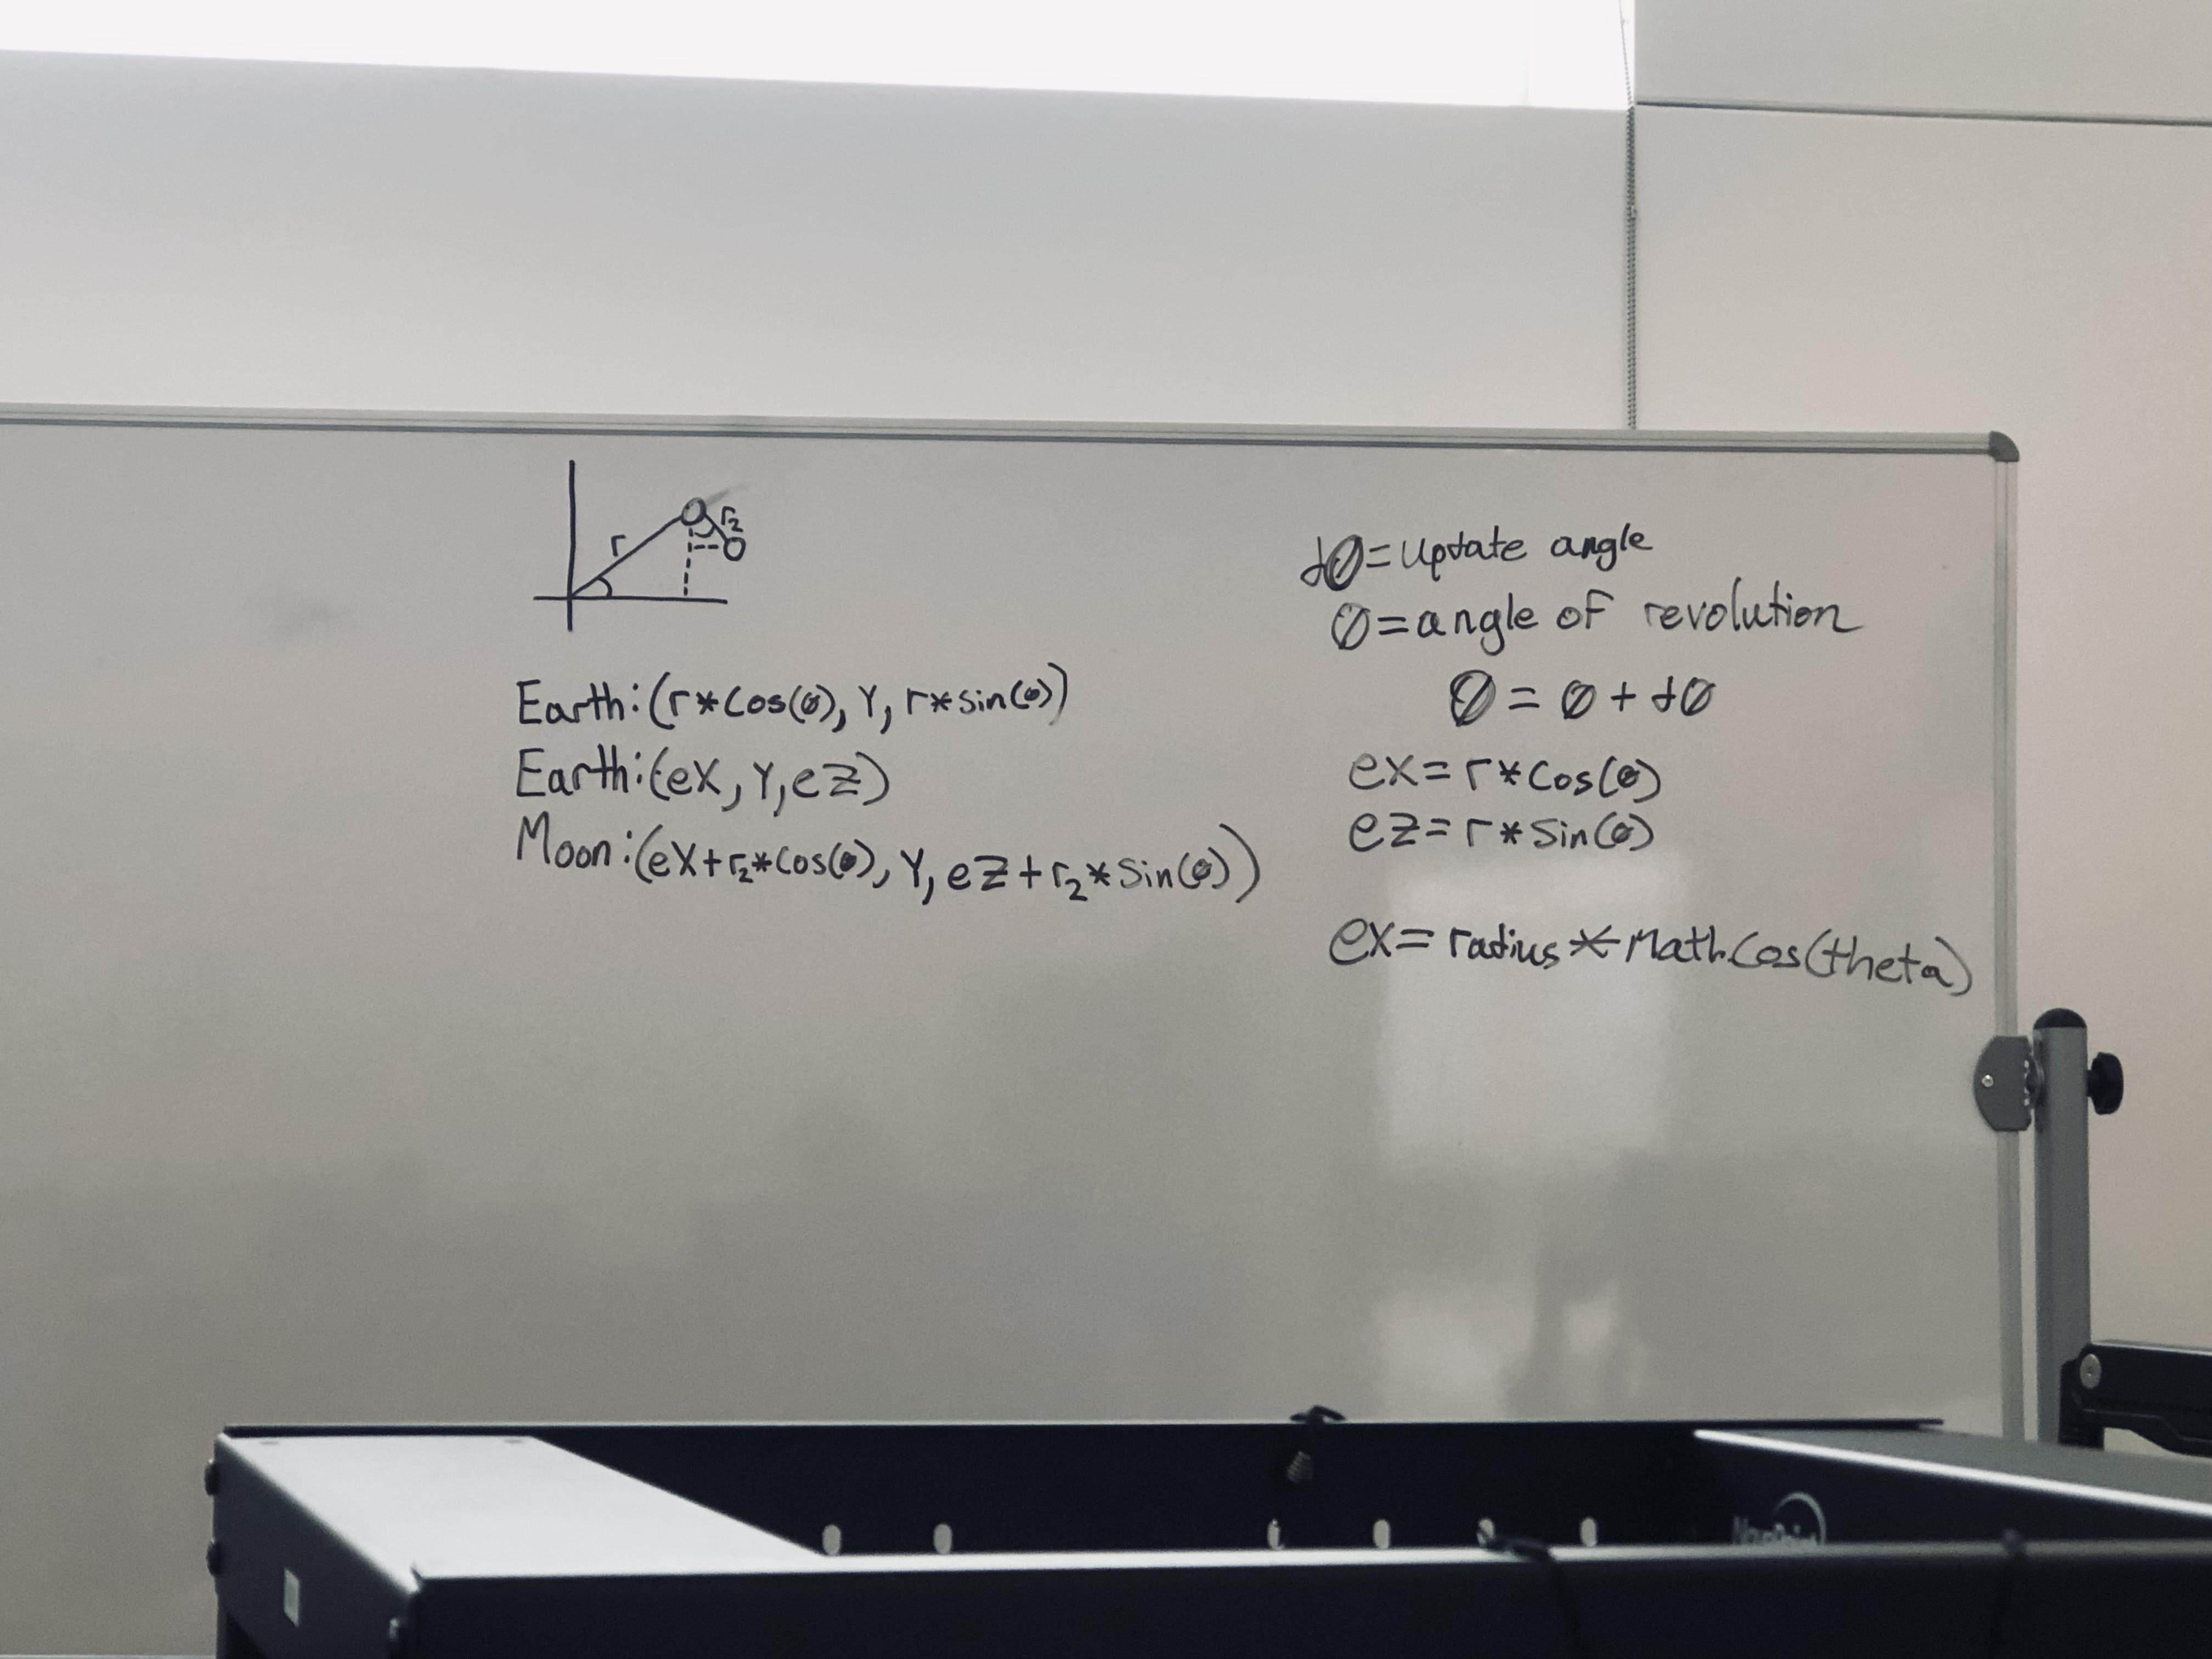 r
r₂
Earth:(r*cos(θ), Y, r*sin(θ))
Earth:(eX, Y, eZ)
Moon:(eX+r₂*cos(θ), Y, eZ+r₂*sin(θ))
dθ=update angle
θ=angle of revolution
θ = θ + dθ
ex=r*cos(θ)
ez=r*sin(θ)
ex=radius*Math.cos(theta)